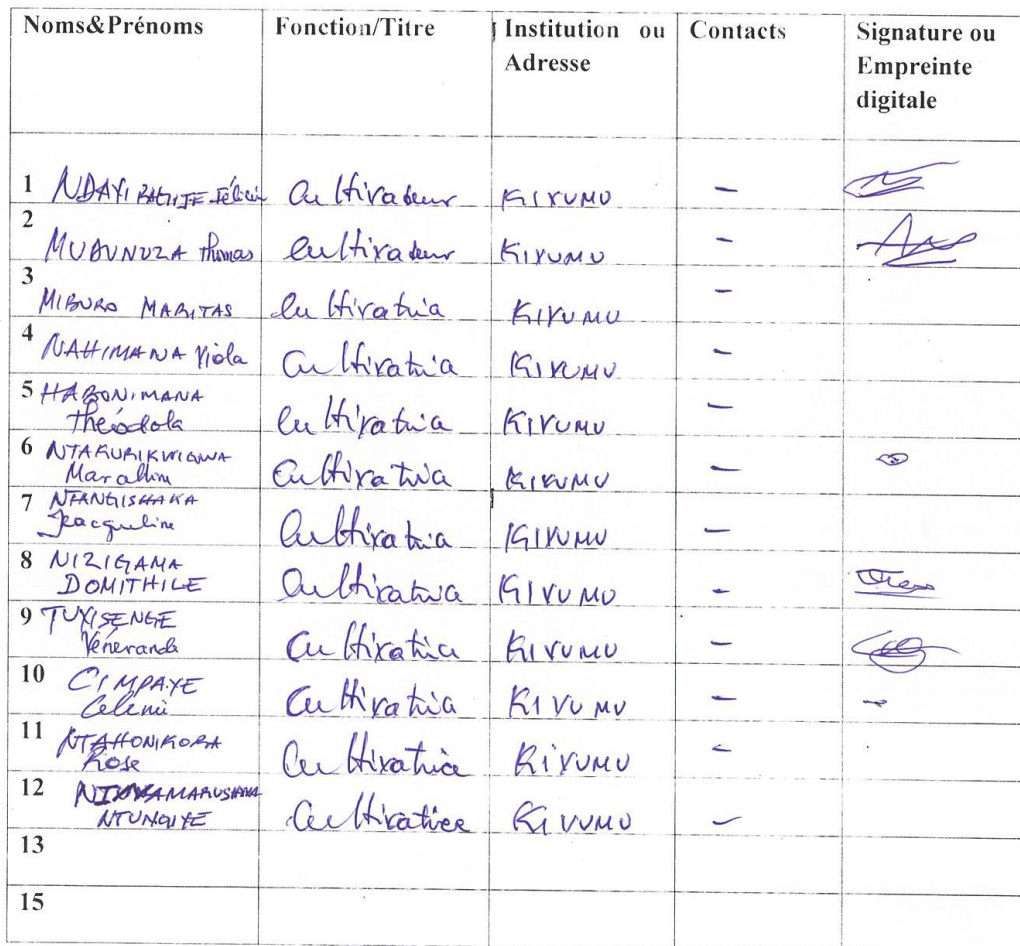 Noms&Prénoms Fonction/Titre Institution ou Adresse Contacts Signature ou Empreinte digitale
1 NDAYI Félicie Cultivateur KIVUMU –
2 MUBUNUZA Thomas Cultivateur KIVUMU –
3 MIBURO MARITAS Cultivatrice KIVUMU –
4 NAHIMANA Viola Cultivatrice KIVUMU –
5 HABONIMANA Cultivatrice KIVUMU –
6 Cultivatrice KIVUMU –
7 NTANGISHAKA Jeacqueline Cultivatrice KIVUMU –
8 NIZIGAMA DOMITHILE Cultivatrice KIVUMU –
9 TUYISENGE Vénerande Cultivatrice KIVUMU –
10 CIMPAYE Cultivatrice KIVUMU –
11 NTAHONIKORA Rose Cultivatrice KIVUMU –
12 Cultivatrice KIVUMU –
13
15